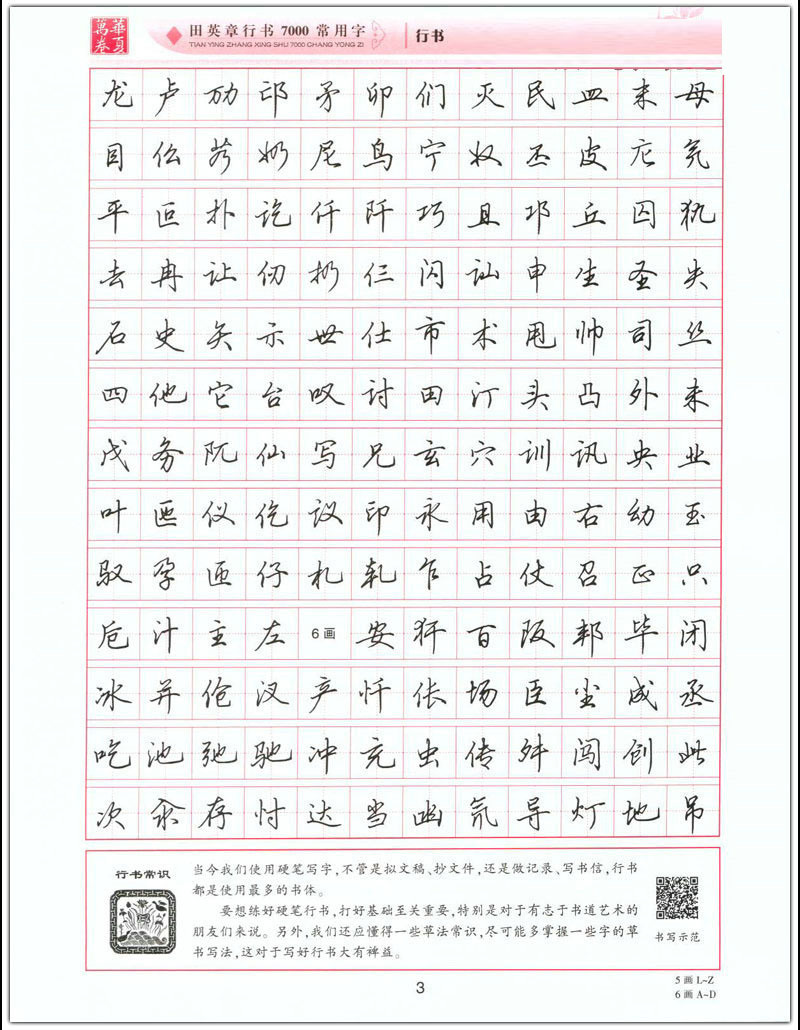 華夏
萬卷
田英章行书 7000 常用字
TIAN YING ZHANG XING SHU 7000 CHANG YONG ZI
行书
龙 卢 劢 邙 矛 卯 们 灭 民 皿 末 母
目 仫 艿 奶 尼 鸟 宁 奴 丕 皮 庀 氕
平 叵 扑 讫 仟 阡 巧 且 邛 丘 囚 犰
去 冉 让 仞 扔 仨 闪 讪 申 生 圣 失
石 史 矢 示 世 仕 市 术 甩 帅 司 丝
四 他 它 台 叹 讨 田 汀 头 凸 外 未
戊 务 阢 仙 写 兄 玄 穴 训 讯 央 业
叶 匜 仪 仡 议 印 永 用 由 右 幼 玉
驭 孕 匝 仔 札 轧 乍 占 仗 召 正 只
卮 汁 主 左 6画 安 犴 百 阪 邦 毕 闭
冰 并 伧 汊 产 忏 伥 场 臣 尘 成 丞
吃 池 弛 驰 冲 充 虫 传 舛 闯 创 此
次 汆 存 忖 达 当 凼 氘 导 灯 地 吊
行书常识
当今我们使用硬笔写字,不管是拟文稿、抄文件,还是做记录、写书信,行书
都是使用最多的书体。
要想练好硬笔行书,打好基础至关重要,特别是对于有志于书道艺术的
朋友们来说。另外,我们还应懂得一些草法常识,尽可能多掌握一些字的草
书写法,这对于写好行书大有裨益。
书写示范
3
5画 L~Z
6画 A~D